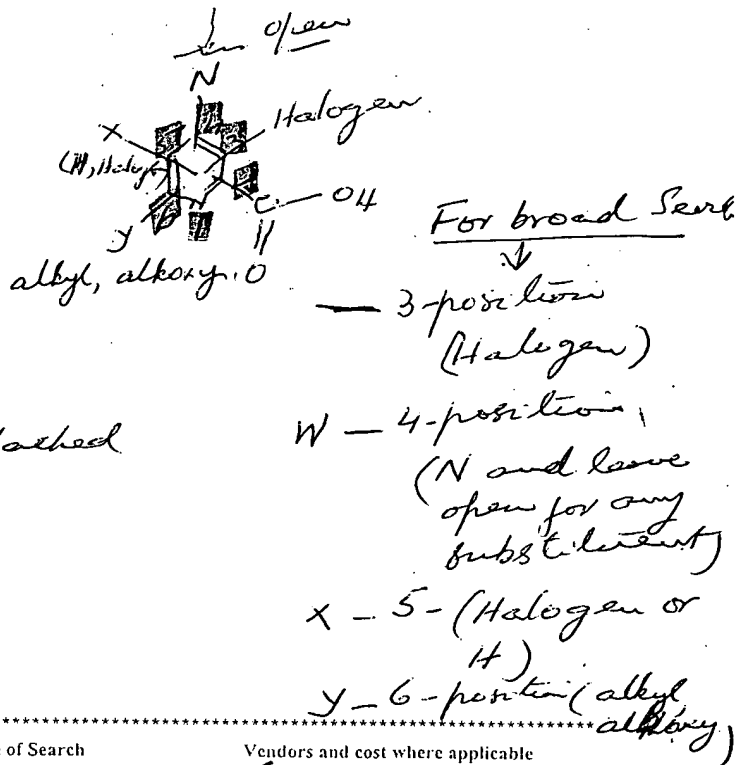 open
N
Halogen
X
(H, Halogen)
C — OH
Y
O
alkyl, alkoxy
For broad Sear
— 3-position
(Halogen)
W — 4-position
(N and leave
open for any
substituent)
X — 5-(Halogen or
H)
Y — 6-position (alkyl
alkoxy)
************************************************
e of Search
Vendors and cost where applicable